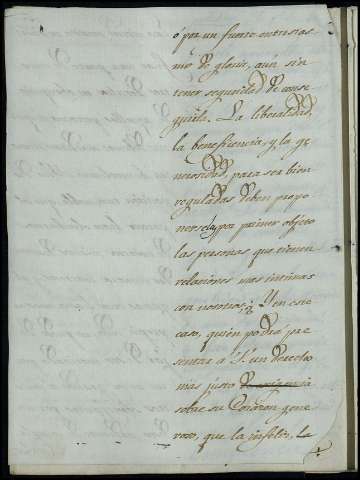 ó por un fuerte entusias-
mo de gloria, aún sin
tener seguridad de conse-
guirla. La liberalidad,
la beneficencia, y la ge-
nerosidad, para ser bien
reguladas deben propo-
nerse por primer objeto
las personas que tienen
relaciones mas intimas
con nosotros: Y en este
caso, quién podrá pre-
sentar a V. un derecho
mas justo
sobre su Corazon gene-
roso, que la infeliz, la